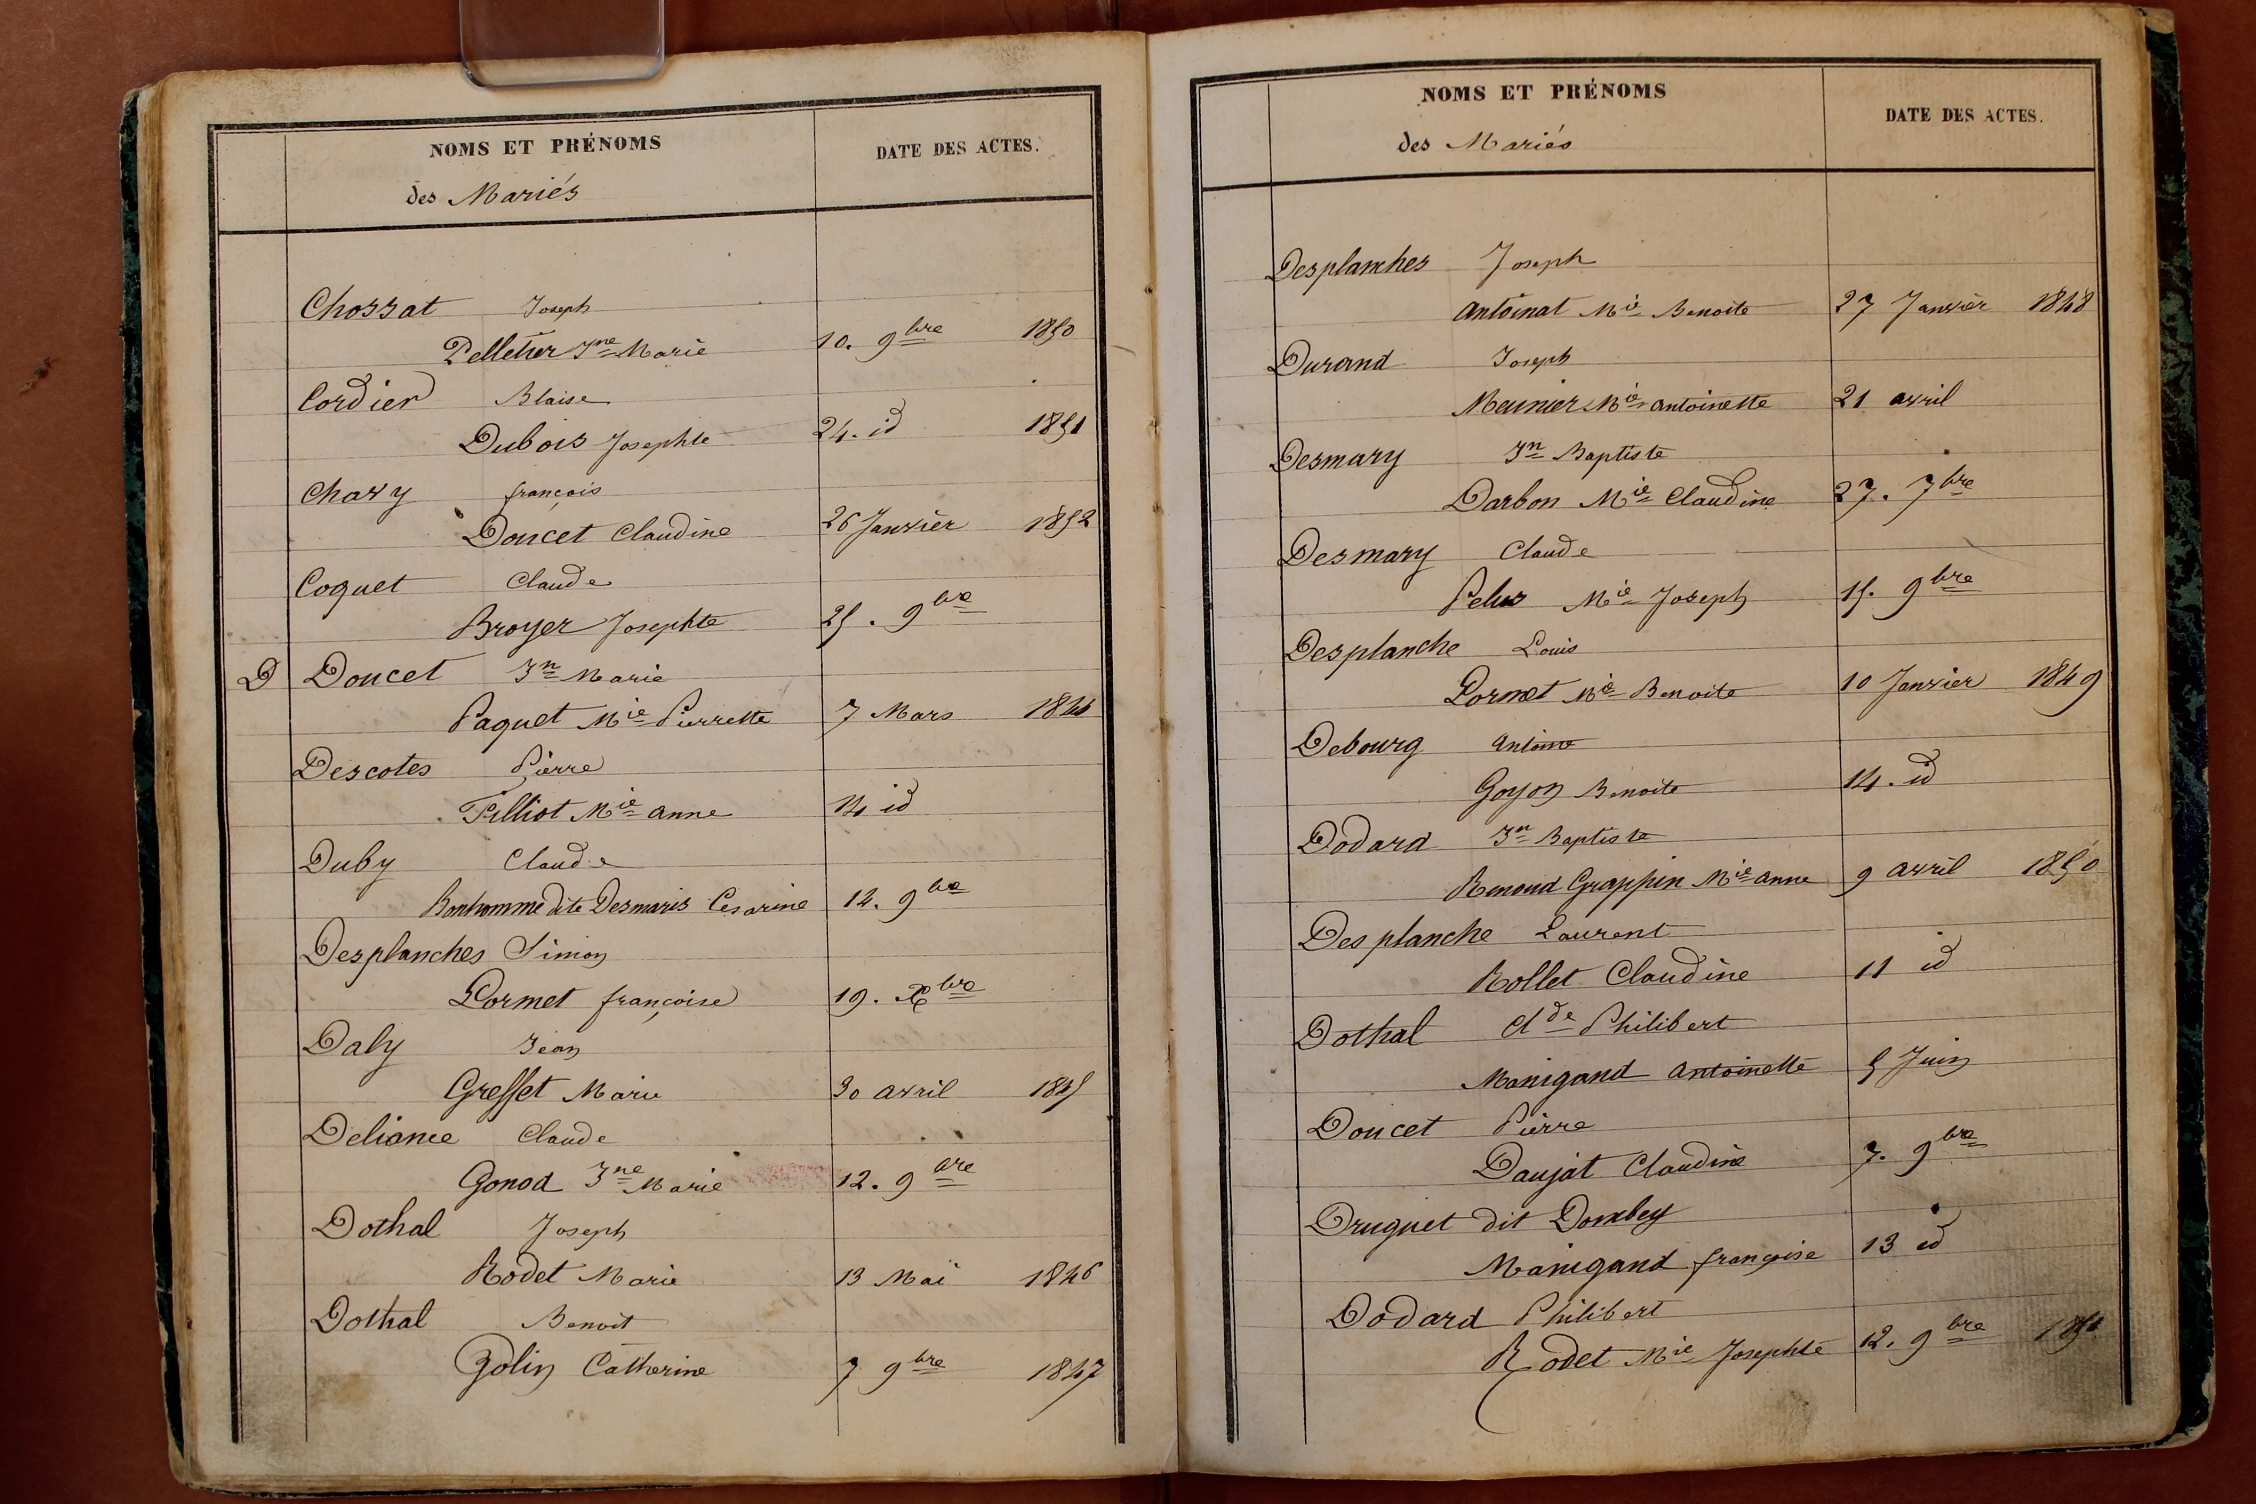 NOMS ET PRÉNOMS
DATE DES ACTES.
des Mariés
Chossat Joseph
Pelletier Jne Marie 10. 9bre 1850
Cordier Blaise
Dubois Josephte 24. id 1851
Chary françois
Doucet Claudine 26 Janvier 1852
Coquet Claude
Broyer Josephte 25. 9bre
D Doucet Jn Marie
Paquet Mie Pierrette 7 Mars 1844
Descotes Pierre
Tilliot Mie anne 14 id
Duby Claude
Bonhomme dite Desmaris Cesarine 12. 9bre
Desplanches Simon
Lormet françoise 19. Xbre
Daly Jean
Greffet Marie 30 avril 1845
Deliance Claude
Gonod Jne Marie 12. 9bre
Dothal Joseph
Rodet Marie 13 Mai 1846
Dothal Benoit
Golin Catherine 7 9bre 1847
NOMS ET PRÉNOMS
DATE DES ACTES.
des Mariés
Desplanches Joseph
Antoinat Mie Benoite 27 Janvier 1848
Durand Joseph
Meunier Mie antoinette 21 avril
Desmary Jn Baptiste
Darbon Mie Claudine 27. 7bre
Desmary Claude
Pelus Mie Joseph 15. 9bre
Desplanche Louis
Lormet Mie Benoite 10 Janvier 1849
Debourg antoine
Goyon Benoite 14. id
Dodard Jn Baptiste
Renoud Grappin Mie anne 9 avril 1850
Desplanche Laurent
Rollet Claudine 11 id
Dothal Clde Philibert
Manigand antoinette 5 Juin
Doucet Pierre
Daujat Claudine 7. 9bre
Druguet dit Dombey
Manigand françoise 13 id
Dodard Philibert
Rodet Mie Josephte 12. 9bre 1851